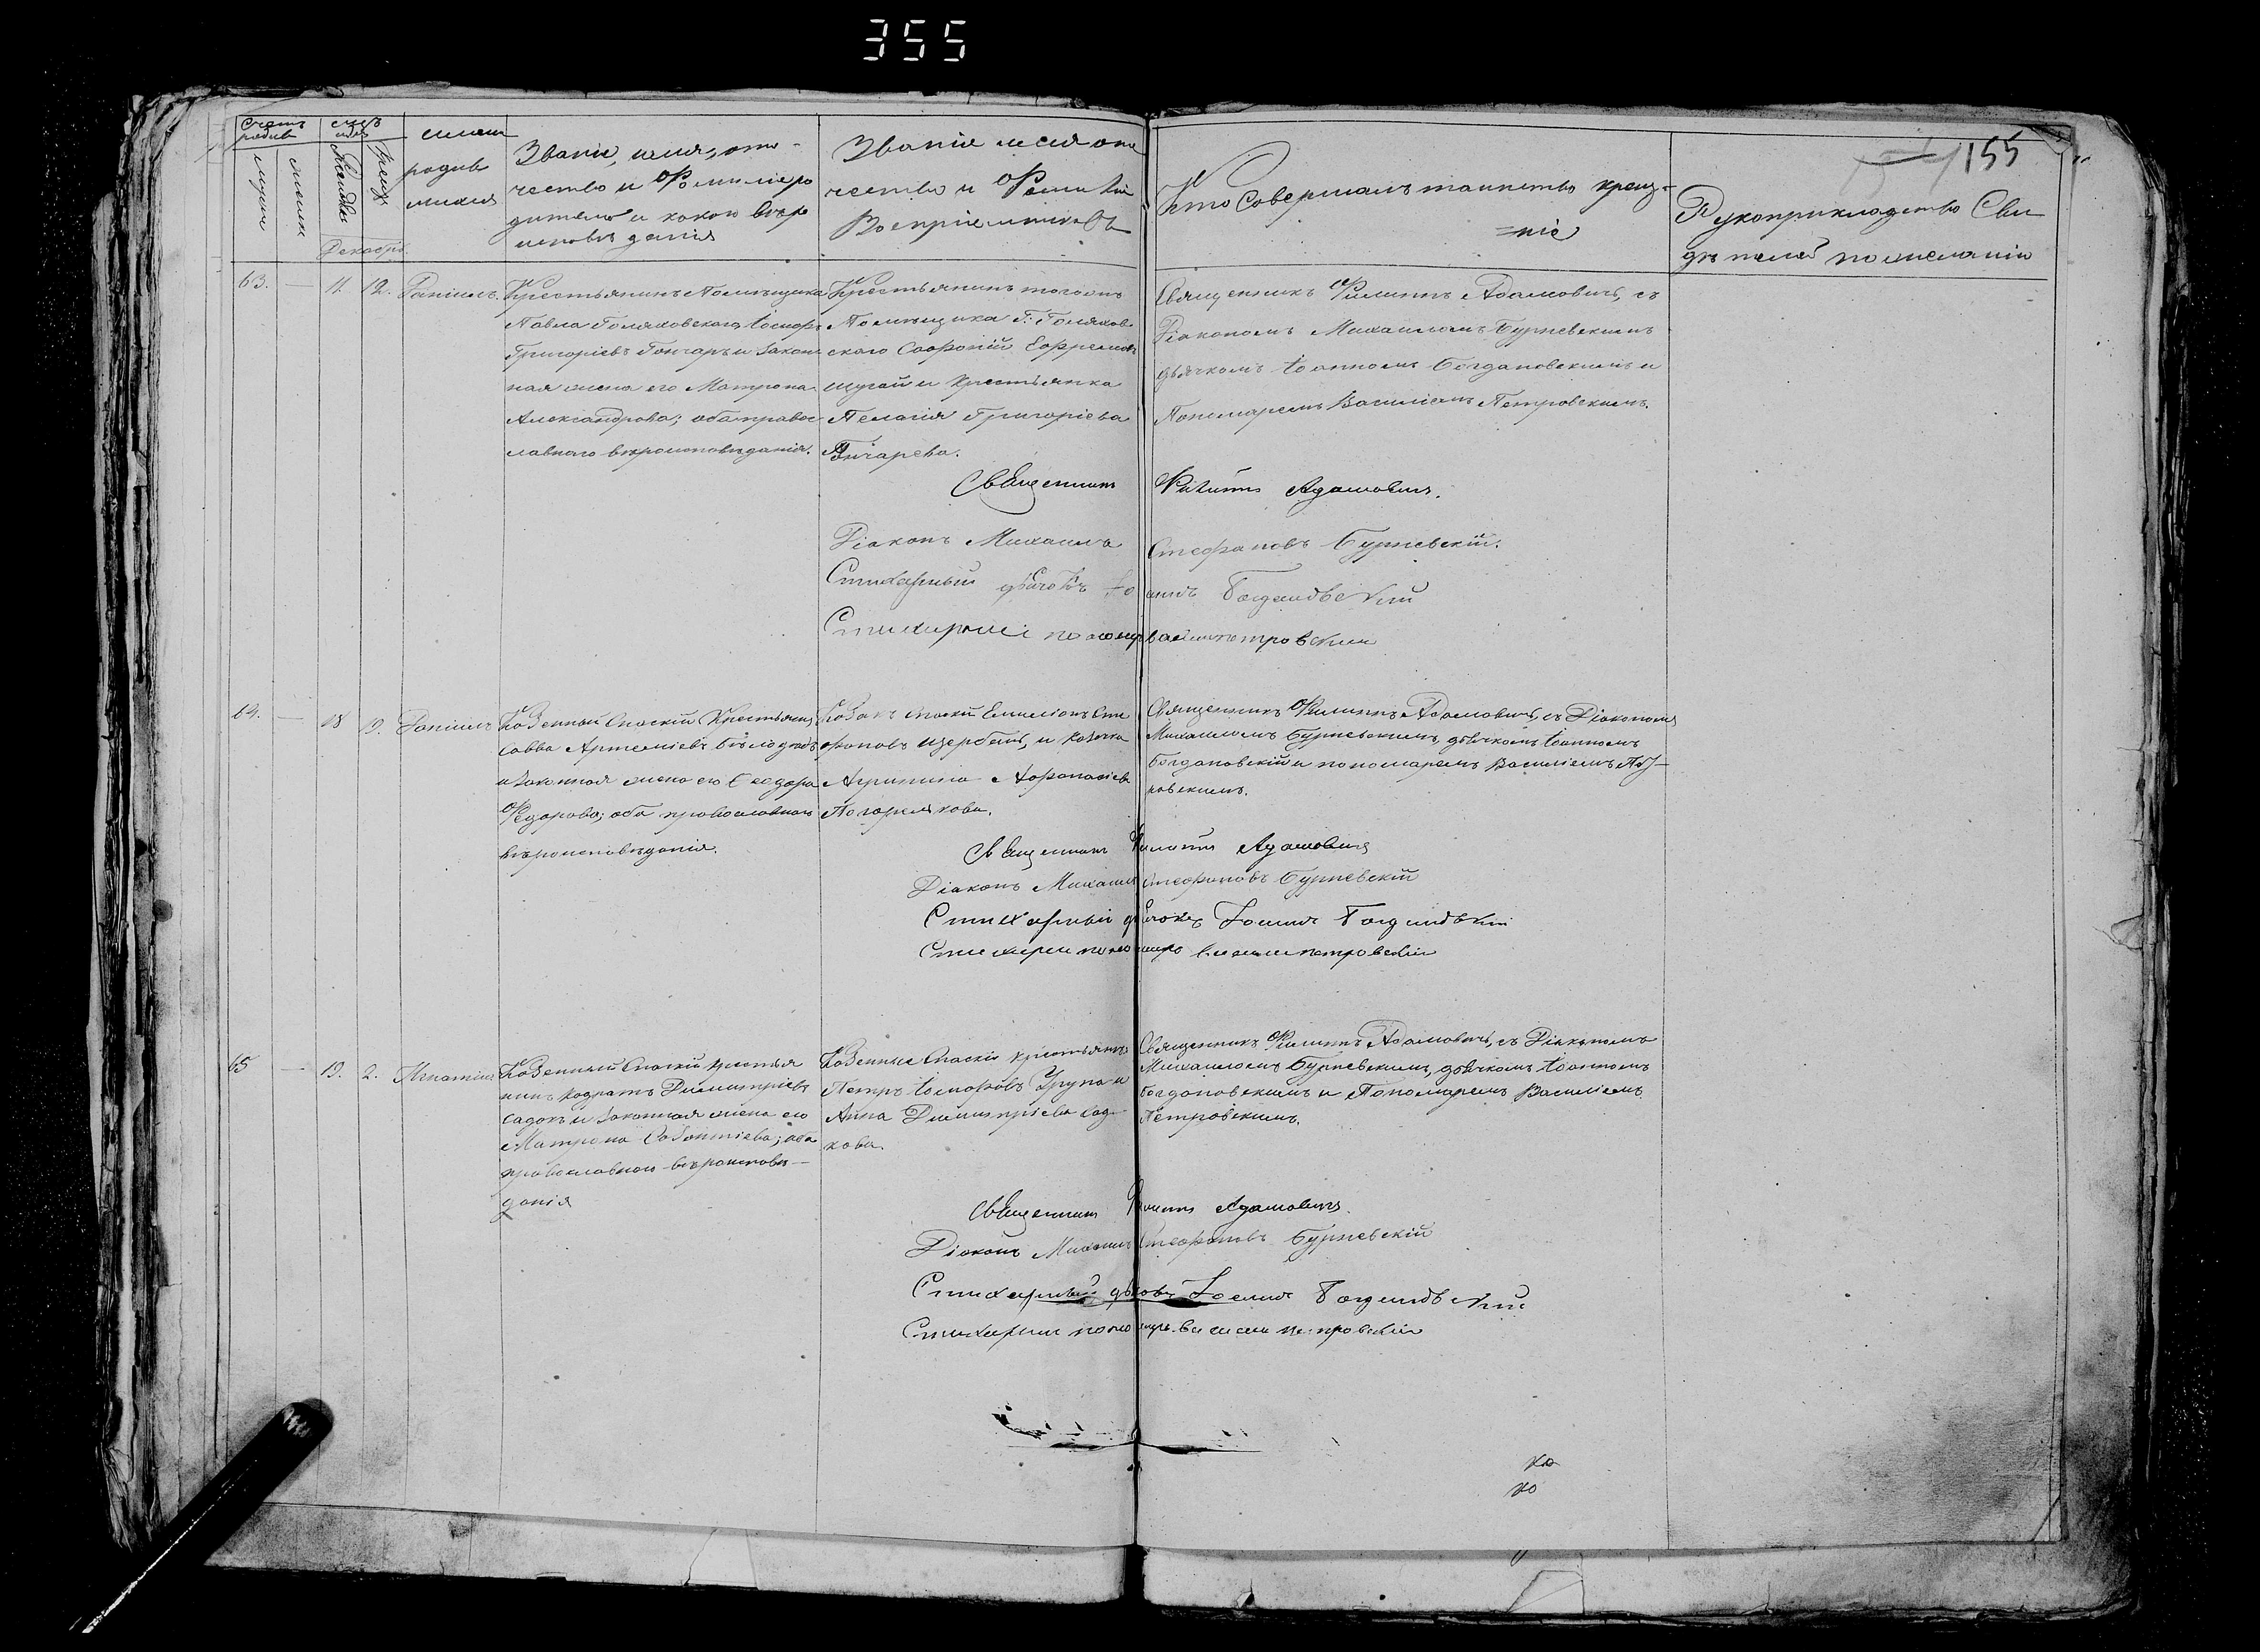 355
155
Счетъ родив
мужеск
женск
Рожден
Крещ
имена
родив
шихся
Званіе, имя, оте-
чество и Фамилія ро
дителей и какого вѣро
исповѣданія
Званіе имя оте
чество и Фамилія
Воспріемниковъ
Кто Совершалъ таинство креще-
=ніе
Рукоприкладство Сви
дѣтелей по желанію
Декабрь.
63.
—
11.
12.
Даніилъ.
Крестьянинъ Помѣщика
Павла Голяховскаго Іосифъ
Григоріевъ Гончаръ и закон
ная жена его Матрона
Александрова; оба право
славнаго вѣроисповѣданія.
Крестьянинъ тогожъ
Помѣщика Г: Голяхов
скаго Софроній Ефремовъ
Шугай и Крестьянка
Пелагія Григоріева
Гончарева.
Священникъ Филиппъ Адамовичъ, съ
Діакономъ Михаиломъ Бурневскимъ
дьячкомъ Іоанномъ Богдановскимъ и
Пономаремъ Василіемъ Петровскимъ.
Священникъ Филиппъ Адамовичъ.
Діаконъ Михаилъ Стефановъ Бурневскій.
Стихарный дьячокъ Іоаннъ Богдановскій
Стихарный пономарь Василий Петровский
64.
—
18
19.
Даніилъ
Казенный Спаскій Крестьянинъ
Савва Артеміевъ Бѣлодѣдъ
и Законная жена его Феодора
Федорова; оба православнаго
вѣроисповѣданія.
Козакъ Спаскій Емиліонъ Сте
фановъ Щербань, и козачка
Агрипина Афанасіева
Погорелякова.
Священникъ Филиппъ Адамовичъ, съ Діакономъ
Михаиломъ Бурневскимъ, дьячкомъ Іоанномъ
Богдановскій и пономаремъ Василіемъ Пет-
ровскимъ.
Священникъ Филиппъ Адамовичъ
Діаконъ Михаилъ Стефановъ Бурневскій
Стихарный дьячокъ Іоаннъ Богдановскій
Стихарный пономарь Василий Петровскій
65
—
19.
2.
Игнатій
Казенный Спаскій крестья
нинъ Кодратъ Димитріевъ
Садокъ и Законная жена его
Матрона Савватіева; оба
православнаго вѣроисповѣ-
данія
Казенные Спаскіе крестьянинъ
Петръ Іосифовъ Урупа и
Анна Димитріева Сад-
кова.
Священникъ Филиппъ Адамовичъ, съ Діакономъ
Михаиломъ Бурневскимъ, дьячкомъ Іоанномъ
Богдановскимъ и Пономаремъ Василіемъ
Петровскимъ.
Священникъ Филиппъ Адамовичъ.
Діаконъ Михаилъ Стефановъ Бурневскій
Стихарный дьячокъ Іоаннъ Богдановскій
Стихарный пономарь Василий Петровскій